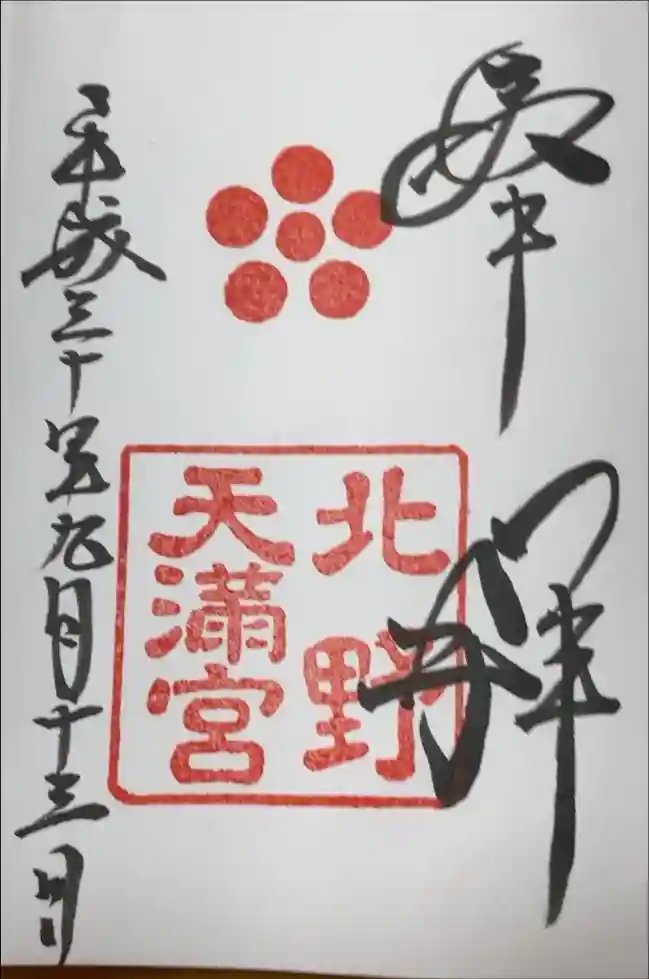 奉拝
北野
天満宮
平成三十年九月十三日